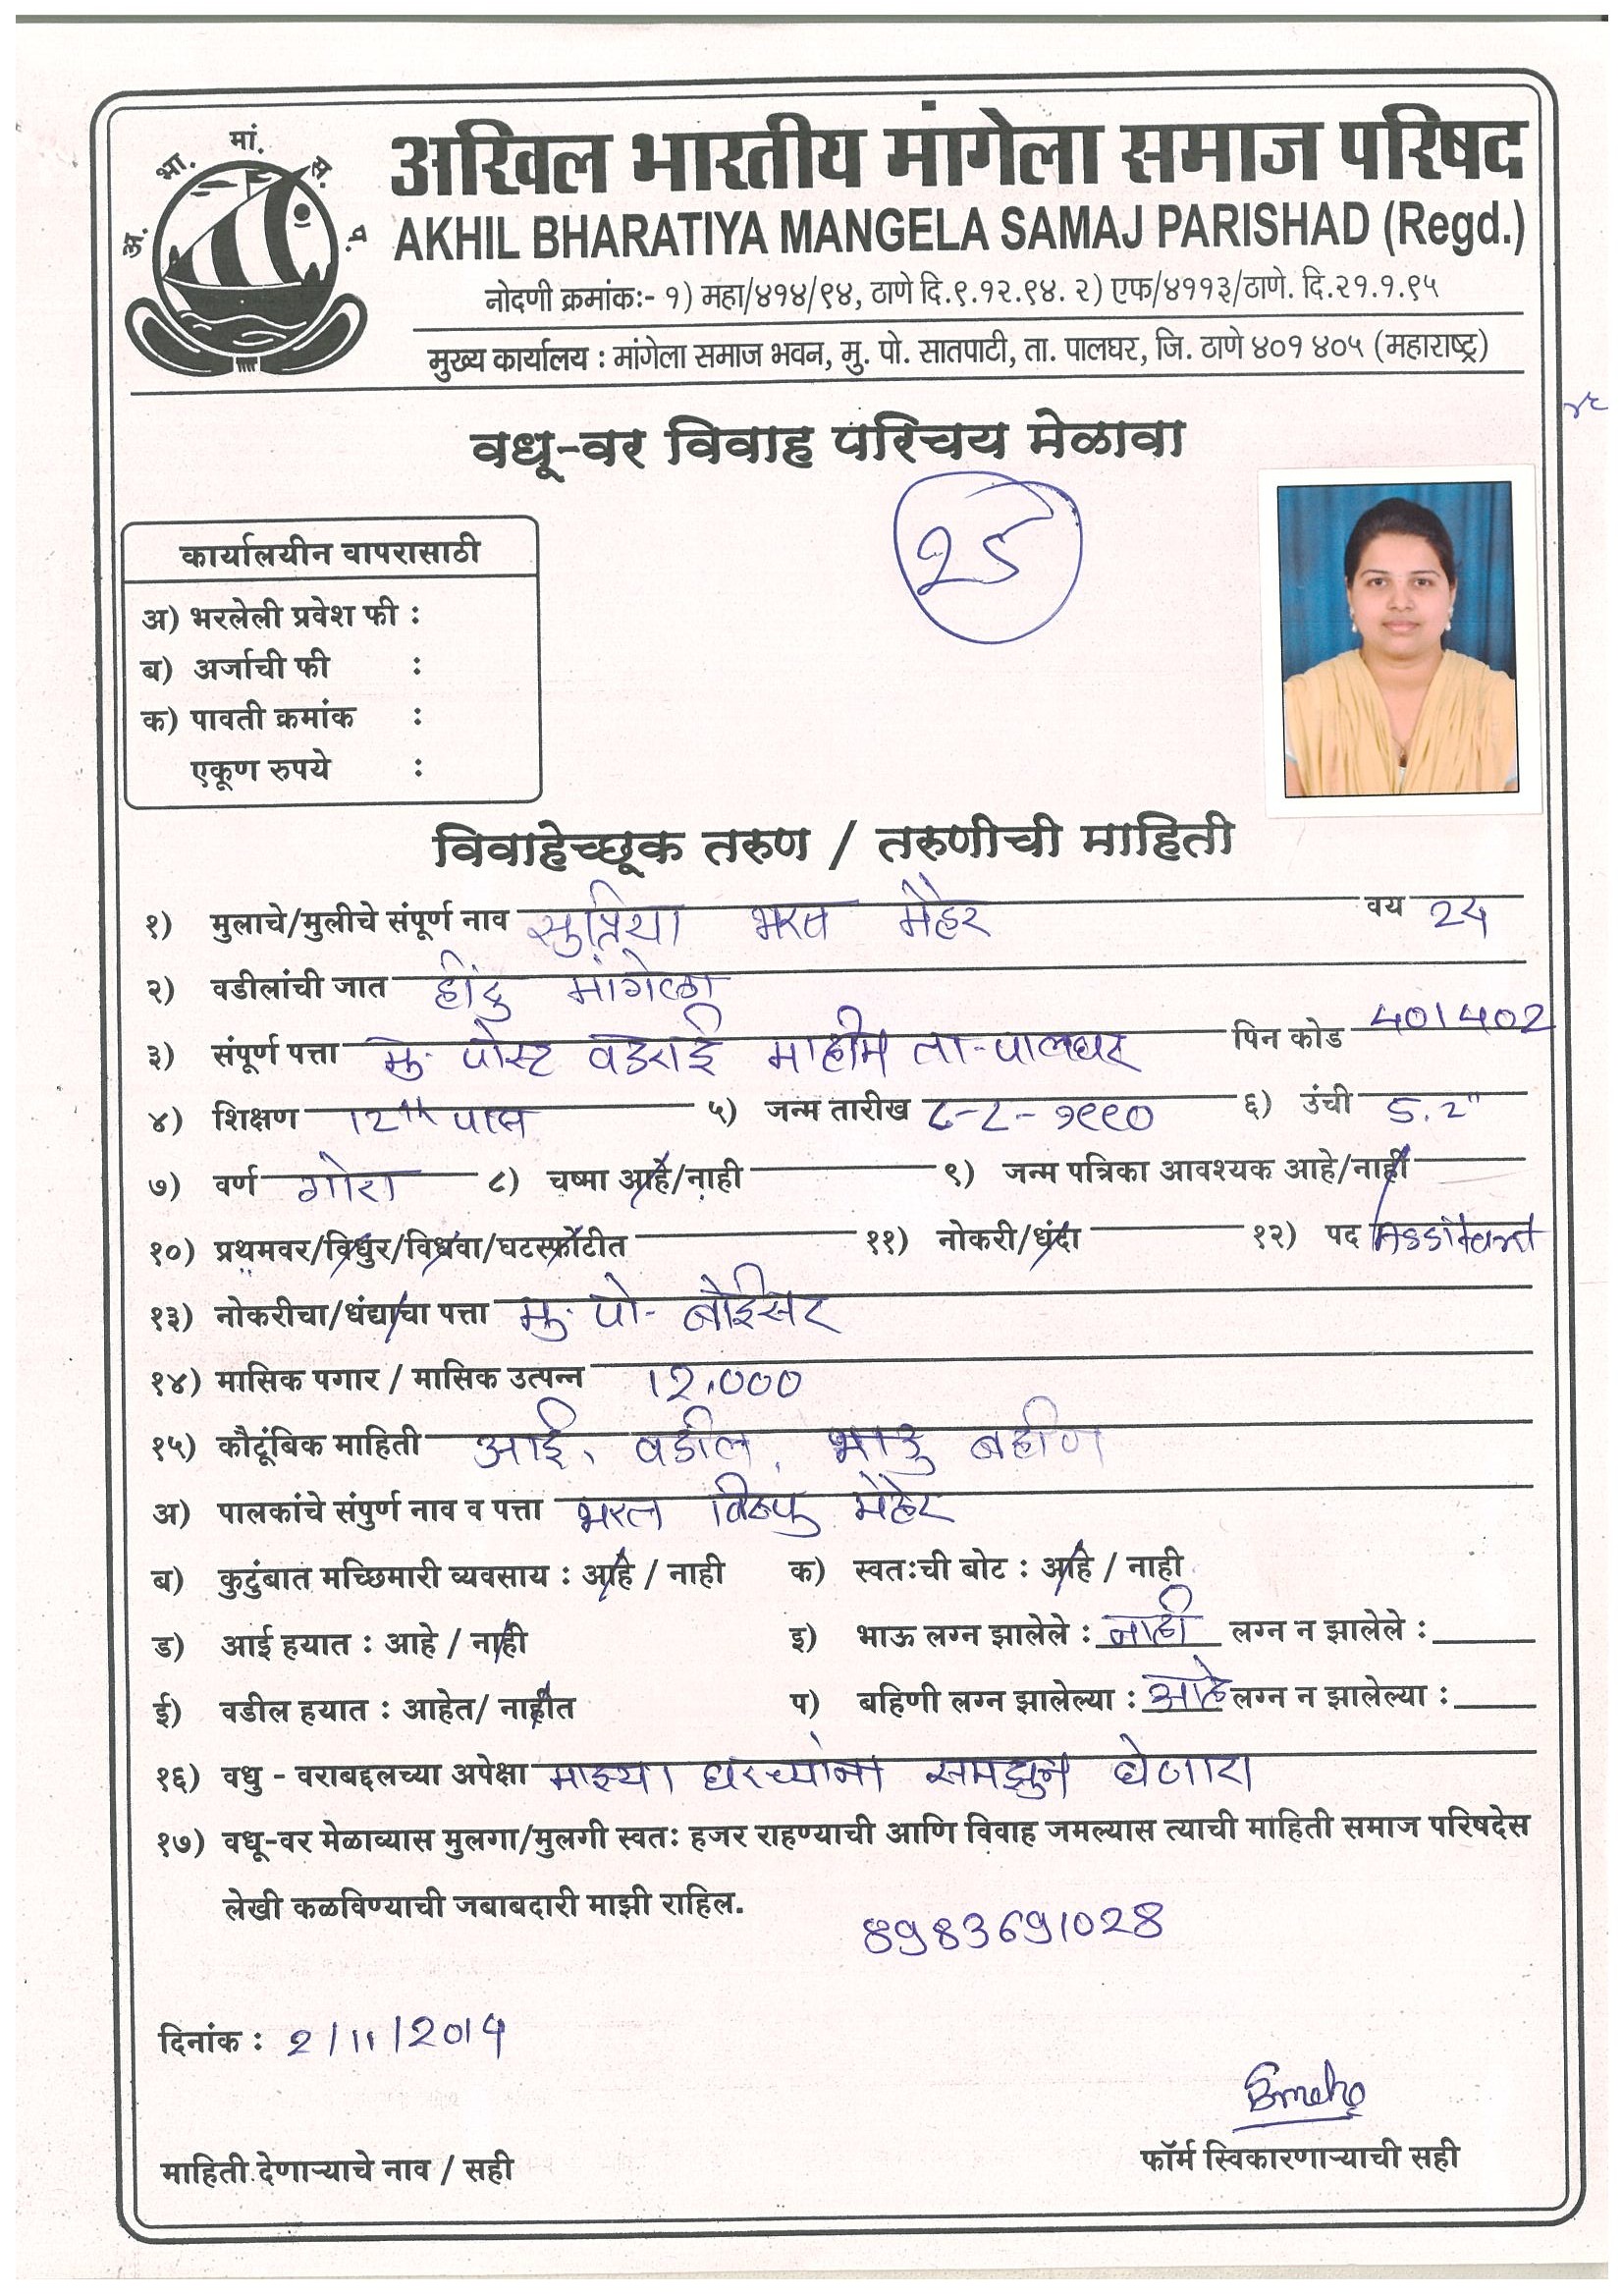 अ. भा. मां. स. प.
अखिल भारतीय मांगेला समाज परिषद
AKHIL BHARATIYA MANGELA SAMAJ PARISHAD (Regd.)
नोदणी क्रमांकः- १) महा/४१४/९४, ठाणे दि.९.१२.९४. २) एफ/४११३/ठाणे. दि.२१.१.९५
मुख्य कार्यालय : मांगेला समाज भवन, मु. पो. सातपाटी, ता. पालघर, जि. ठाणे ४०१ ४०५ (महाराष्ट्र)
वधू-वर विवाह परिचय मेळावा
कार्यालयीन वापरासाठी
अ) भरलेली प्रवेश फी :
ब) अर्जाची फी :
क) पावती क्रमांक :
एकूण रुपये :
विवाहेच्छूक तरुण / तरुणीची माहिती
१) मुलाचे/मुलीचे संपूर्ण नाव सुप्रिया भरत मेहेर वय 24
२) वडीलांची जात हींदु मांगेला
३) संपूर्ण पत्ता मु. पोस्ट वडराई माहीम ता-पालघर पिन कोड 401402
४) शिक्षण 12th पास ५) जन्म तारीख ८-८-१९९० ६) उंची 5.2"
७) वर्ण गोरा ८) चष्मा आहे/नाही ९) जन्म पत्रिका आवश्यक आहे/नाही
१०) प्रथमवर/विधुर/विधवा/घटस्फोटीत ११) नोकरी/धंदा १२) पद
१३) नोकरीचा/धंद्याचा पत्ता मु. पो- बोईसर
१४) मासिक पगार / मासिक उत्पन्न 12,000
१५) कौटूंबिक माहिती आई, वडील, भाऊ बहीण
अ) पालकांचे संपुर्ण नाव व पत्ता भरत विठ्ठु मेहेर
ब) कुटुंबात मच्छिमारी व्यवसाय : आहे / नाही क) स्वतःची बोट : आहे / नाही
ड) आई हयात : आहे / नाही इ) भाऊ लग्न झालेले : नाही लग्न न झालेले :
ई) वडील हयात : आहेत/ नाहीत प) बहिणी लग्न झालेल्या : आहे लग्न न झालेल्या :
१६) वधु - वराबद्दलच्या अपेक्षा माझ्या घरच्यांना समझुन घेणारा
१७) वधू-वर मेळाव्यास मुलगा/मुलगी स्वतः हजर राहण्याची आणि विवाह जमल्यास त्याची माहिती समाज परिषदेस
लेखी कळविण्याची जबाबदारी माझी राहिल.
8983691028
दिनांक : 2/11/2014
माहिती देणाऱ्याचे नाव / सही
फॉर्म स्विकारणाऱ्याची सही